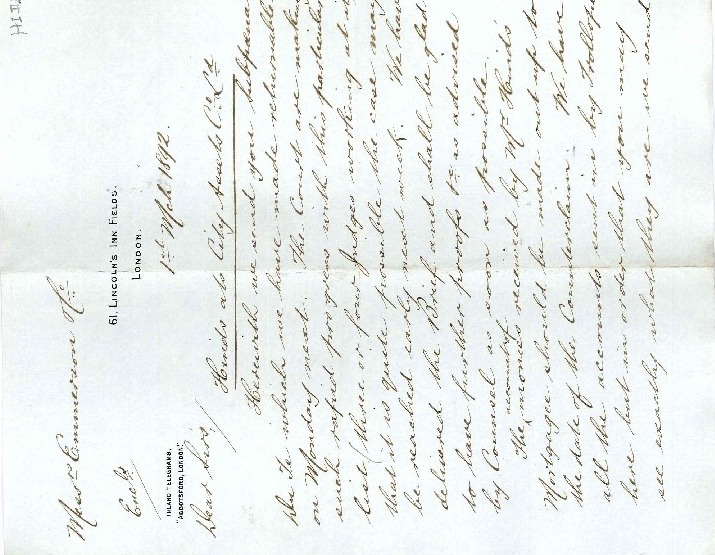 Messrs Emmerson & Co
61, LINCOLN'S INN FIELDS.
LONDON.
1st Mch 1892.
INLAND TELEGRAMS,
"ABBOTSFORD, LONDON"
Dear Sirs/
Hinds ats City
Herewith we send you Subpœna
which we have made returnable
on Monday next. The Court are making
such rapid progress with this particular
list (three or four Judges working at it
that it is quite possible the case may
be reached early next week. We have
delivered the Brief and shall be glad
to have further proofs as advised
by Counsel as soon as possible.
The accounts monies received by Mr Hinds'
Mortgagee should be made out up to
the date of the Counterclaim We have
all the accounts sent us by Trollope
here but in order that you may
see exactly what they are we send